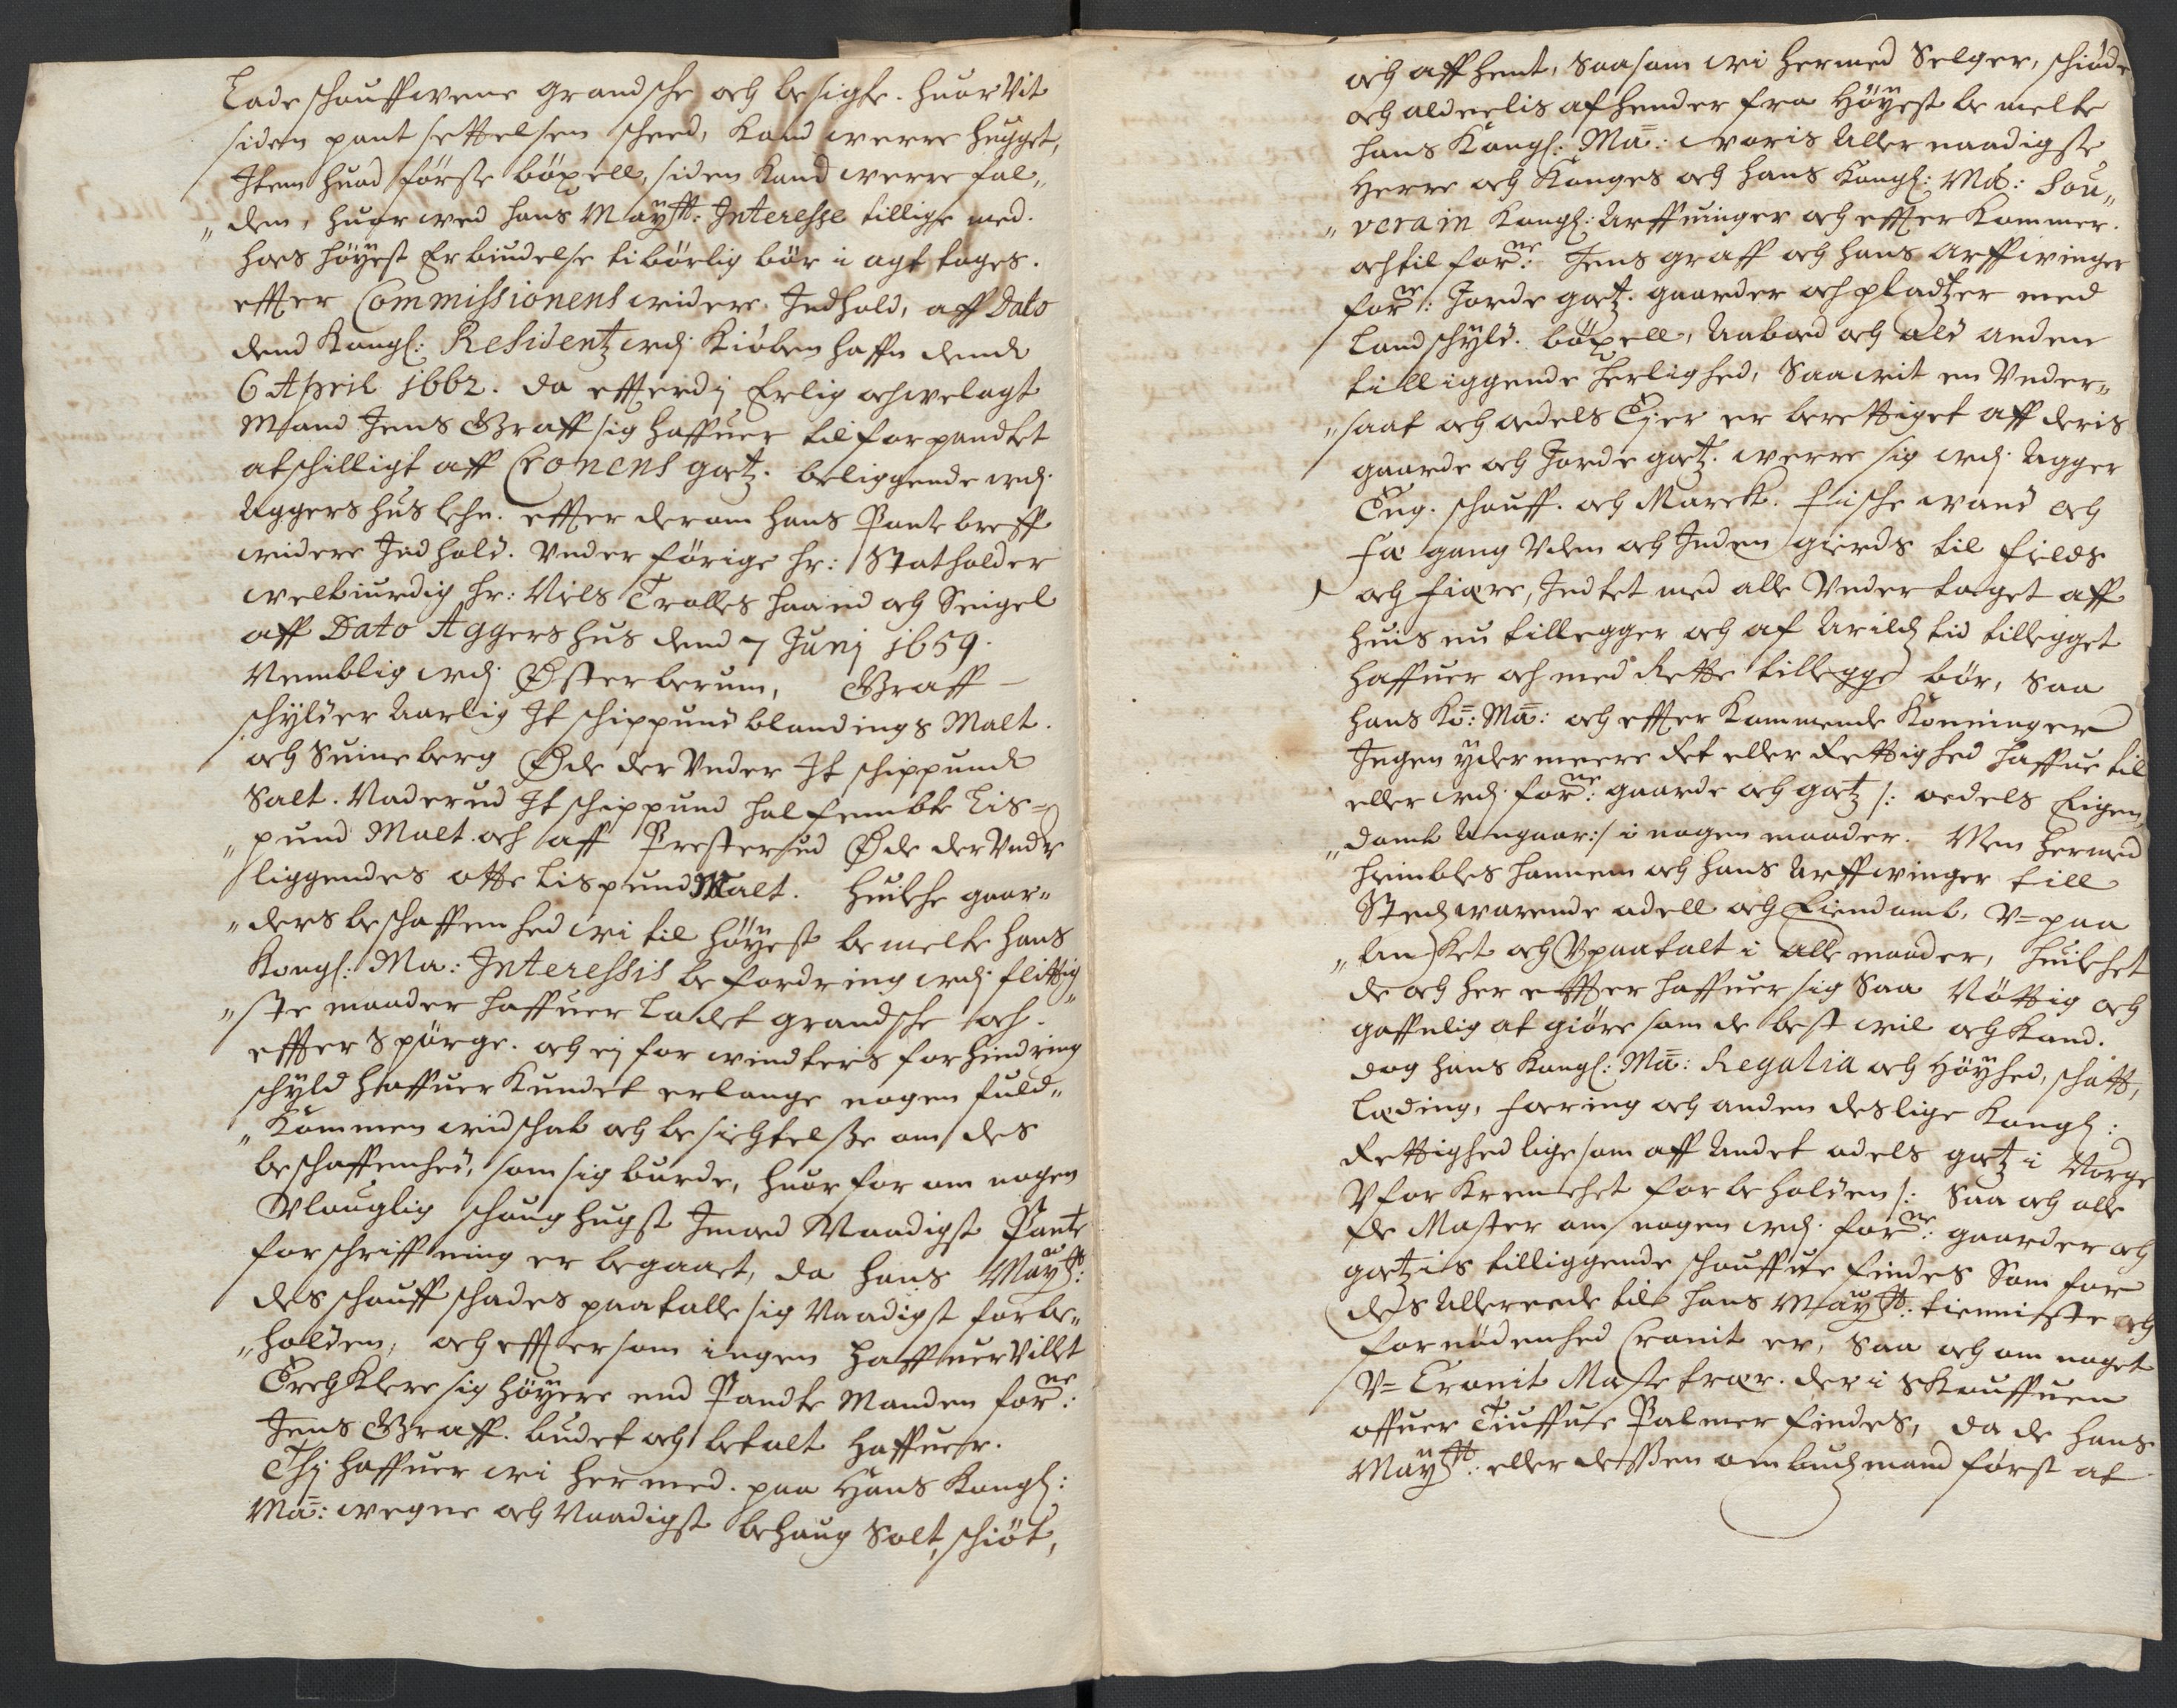 Lade schouffwene grandsche och besigte. huor Vit
siden pant settelsen scheed, kand werre hugget,
Item huad förste böxell, siden kand werre fal„
„den, huor wed hans Maÿtt: Interesse tillige med
hans höÿest Erbiudelse tibörlig bör i agt tages.
effter Commissionens widere Indhold, aff Dato
dend Kongl: Residentz wdj Kiöbenhaffn dend
6 April 1662. da effterdj Erlig och welagt
Mand Jens Graff sig haffuer til forpandtet
atschilligt aff Cronens gotz. beliggende wdj
Aggershus lehn. effter derom hans Pantebreff
widere Indhold. Vnder förige hr: Statholder
welbiurdig hr: Niels Trolles haand och Seigel
aff Dato Aggershus dend 7 Junj 1659.
Nemblig wdj Østerberum, Graff
schylder Aarlig It schippund blandings Malt.
och Suineberg Øde der Vnder It schippund
Salt. Naderud It schippund half fembte Lis=
„pund Malt och aff Presterud Øde der Vnder
liggendes otte Lispund Malt. Huilche gaar„
„ders beschaffenhed wi til höÿest bemelte hans
Kongl: Ma: Interessis befordring wdj flittig„
„ste maader haffuer Ladet grandsche och
effter Spörge. och ej for windteris forhindring
schyld haffuer kundet erlange nogen fuld„
„kommen widschab och besichtelsse om des
beschaffenhed, som sig burde, huor for om nogen
Vlouglig schoug hugst Imod Naadigst Pante
forschriffning er begaaet, da hans Maÿtt:
des schouff schades paatalle sig Naadigst forbe„
„holden, och effter som ingen haffuer Villet
Erchklere sig höyere end Pandte Manden forne:
Jens Graff. budet och betalt haffuer.
Thj haffuer wi hermed. paa Hans Kongl:
Ma: wegne och Naadigst behaug Solt, schiöt,
och affhent, Saasom wi hermed Selger, schiöder
och aldeelis afhender fra Höÿest be melte
hans Kongl: Ma: woris Aller naadigste
Herre och Konges och hans Kongl: Ma: Sou„
„verain Kongl: Arffuinger och effter kommer.
och til forne: Jens graff och hans arffwinger
forne: Jorde gotz. gaarder och pladtzer med
Landschyld. böxell, Aabod och ald anden
tilliggende herlighed, Saawit en Vnder„
„saat och odels Ejer er berettiget aff deris
gaarde och Jorde gotz. werre sig wdj Agger
Eng. schouff. och March. fische wand och
fæ gang Vden och Inden gierds til fields
och fiære, Indtet med alle Vndertaget aff
huis nu tillegger och af Arilds tid tilligget
haffuer och med Rette tillegge bör, Saa
hans Ko: Ma: och effter kommende Konninger
Ingen ydermeere Ret eller Rettighed haffue til
eller wdj forne: gaarde och gotz /: odels Eigen„
„domb Angaar :/ i nogen maader. Men hermed
heimbles hannem och hans Arffwinger till
Stedswarende odell och Eiendomb, V=paa
„ancket och Vpaatalt i alle maader, huilchet
de och her effter haffuer sig Saa Nöttig och
gaffnlig at giöre som de best wil och kand.
dog hans Kongl: Ma: Regalia och Höÿhed, schatt,
Leding, foering och anden deslige Kongl:
Rettighed lige som aff Andet odels gotz i Norge
Vforkrenchet forbeholden /: Saa och alle
de Master om nogen wdj forne: gaarder och
gotzis tilliggende schouffue findes Som for
des Allereede til hans Maÿtt. tienniste och
fornödenhed Cronit er, Saa och om noget
V=Cronit Maste trær. der i Skouffuen
offuer Tiuffue Palmer findes, da de hans
Maÿtt: eller dessen ombudsmand först at